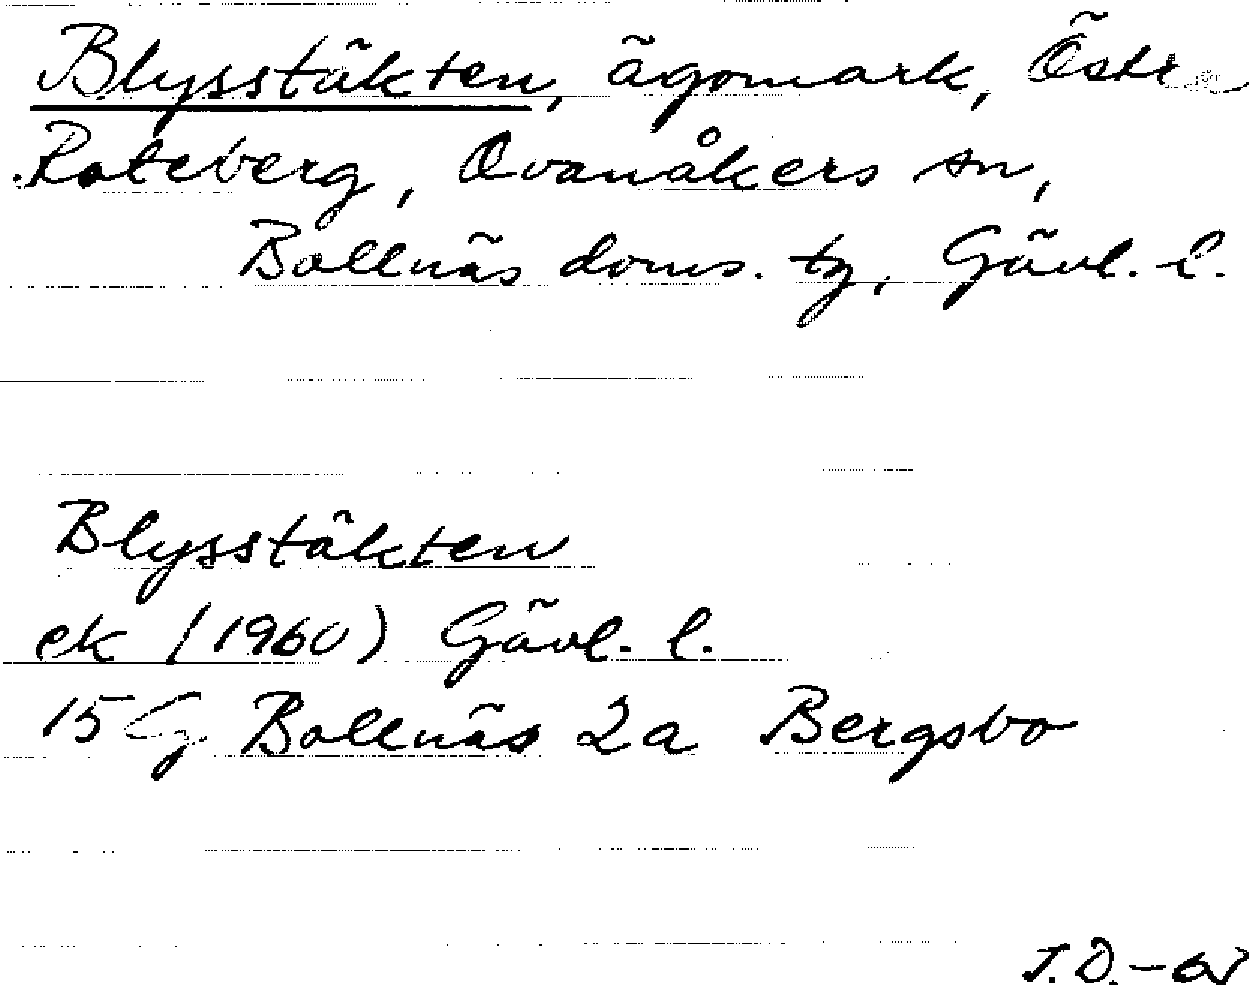 Blysstäkten, ägomark, Östra
Roteberg, Ovanåkers sn,
Bollnäs doms. tg, Gävl. l.
Blysstäkten
ek (1960) Gävl. l.
15 G Bollnäs 2a Bergsbo